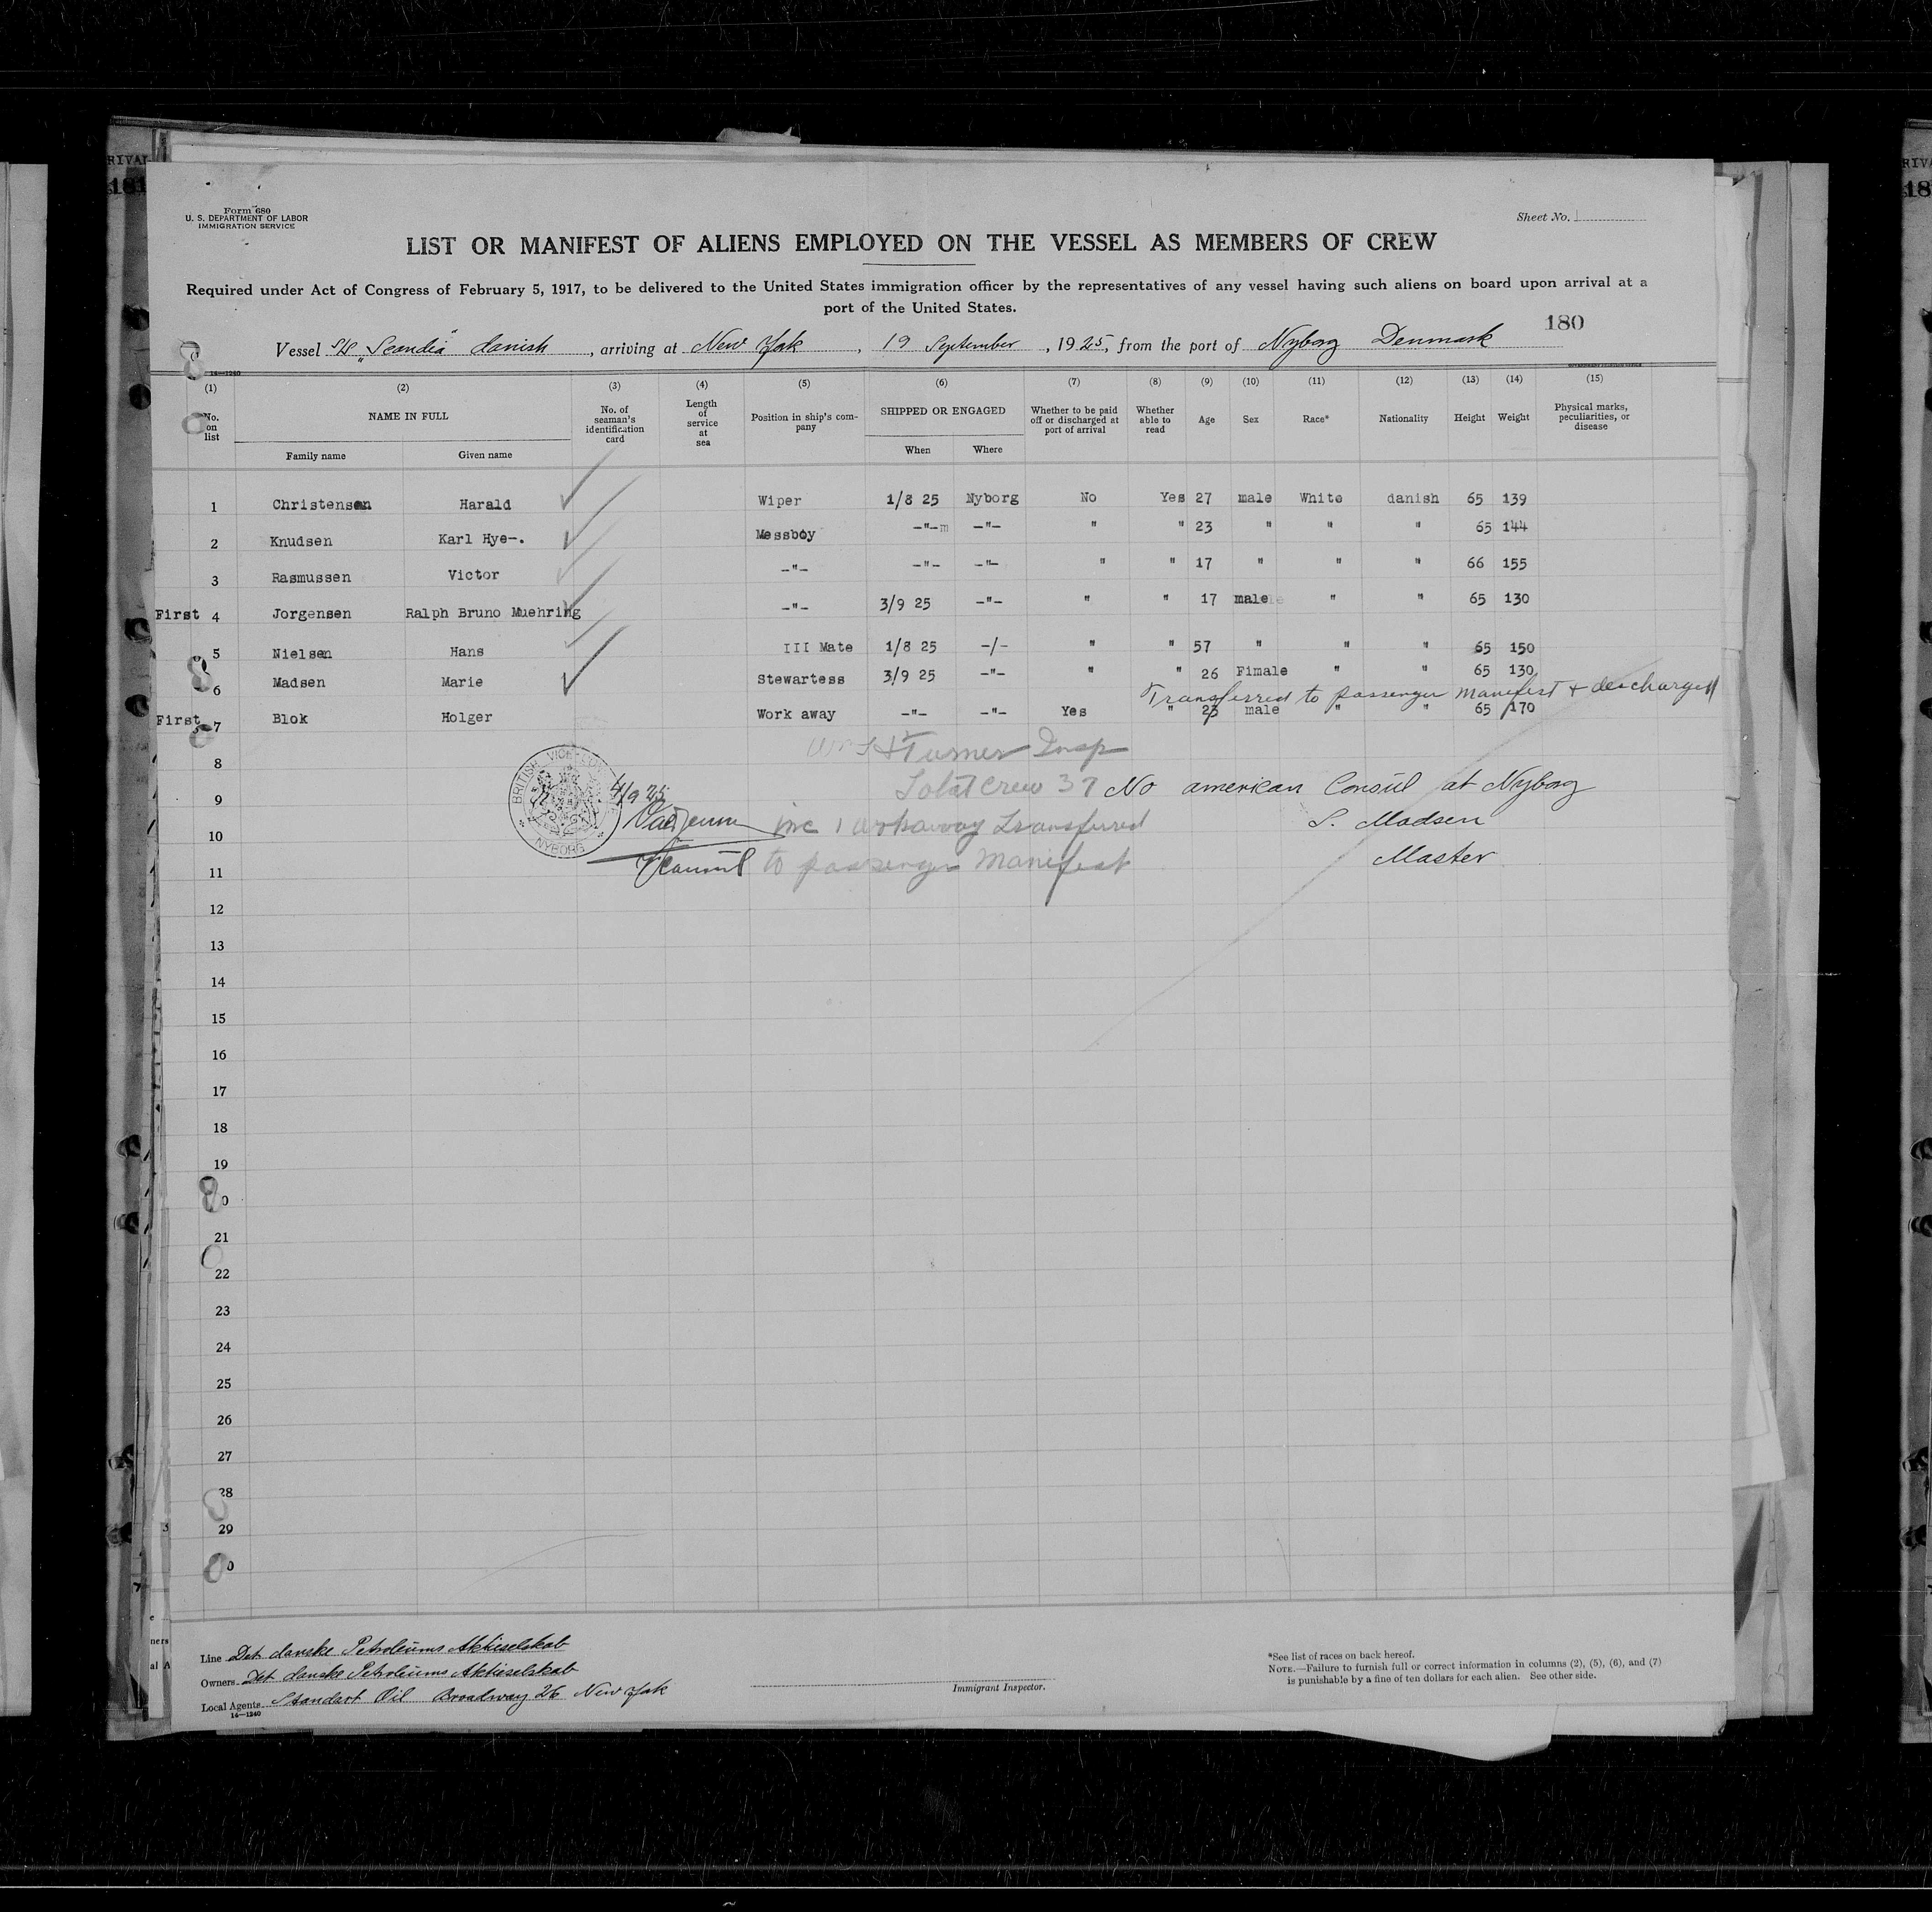 RIVAL
181
Form 680
U. S. DEPARTMENT OF LABOR
IMMIGRATION SERVICE
Sheet No.
LIST OR MANIFEST OF ALIENS EMPLOYED ON THE VESSEL AS MEMBERS OF CREW
Required under Act of Congress of February 5, 1917, to be delivered to the United States immigration officer by the representatives of any vessel having such aliens on board upon arrival at a
port of the United States.
180
Vessel S/S "Scandia" danish, arriving at New York, 19 September, 1925, from the port of Nyborg Denmark
14—1240
(1) (2) (3) (4) (5) (6) (7) (8) (9) (10) (11) (12) (13) (14) (15)
No. on list NAME IN FULL Family name Given name No. of seaman's identification card Length of service at sea Position in ship's company SHIPPED OR ENGAGED When Where Whether to be paid off or discharged at port of arrival Whether able to read Age Sex Race* Nationality Height Weight Physical marks, peculiarities, or disease
1 Christensen Harald Wiper 1/8 25 Nyborg No Yes 27 male White danish 65 139
2 Knudsen Karl Hye-. Messboy -"- -"- " " 23 " " " 65 144
3 Rasmussen Victor -"- -"- -"- " " 17 " " " 66 155
First 4 Jorgensen Ralph Bruno Muehring -"- 3/9 25 -"- " " 17 male " " 65 130
5 Nielsen Hans III Mate 1/8 25 -/- " " 57 " " " 65 150
6 Madsen Marie Stewartess 3/9 25 -"- " " 26 Fimale " " 65 130
Transferred to passenger manifest + discharged
First 7 Blok Holger Work away -"- -"- Yes " 23 male " " 65 170
8 Turner Insp
BRITISH VICE
NYBORG
4/9 25
9 Total Crew 37 No american Consul at Nyborg
10 inc 1 workaway transferred S. Madsen
11 to passenger manifest Master
12
13
14
15
16
17
18
19
20
21
22
23
24
25
26
27
28
29
30
Line Det danske Petroleums Aktieselskab
Owners Det danske Petroleums Aktieselskab
Local Agents Standart Oil Broadway 26 New York
14—1240
Immigrant Inspector.
*See list of races on back hereof.
NOTE.—Failure to furnish full or correct information in columns (2), (5), (6), and (7)
is punishable by a fine of ten dollars for each alien. See other side.